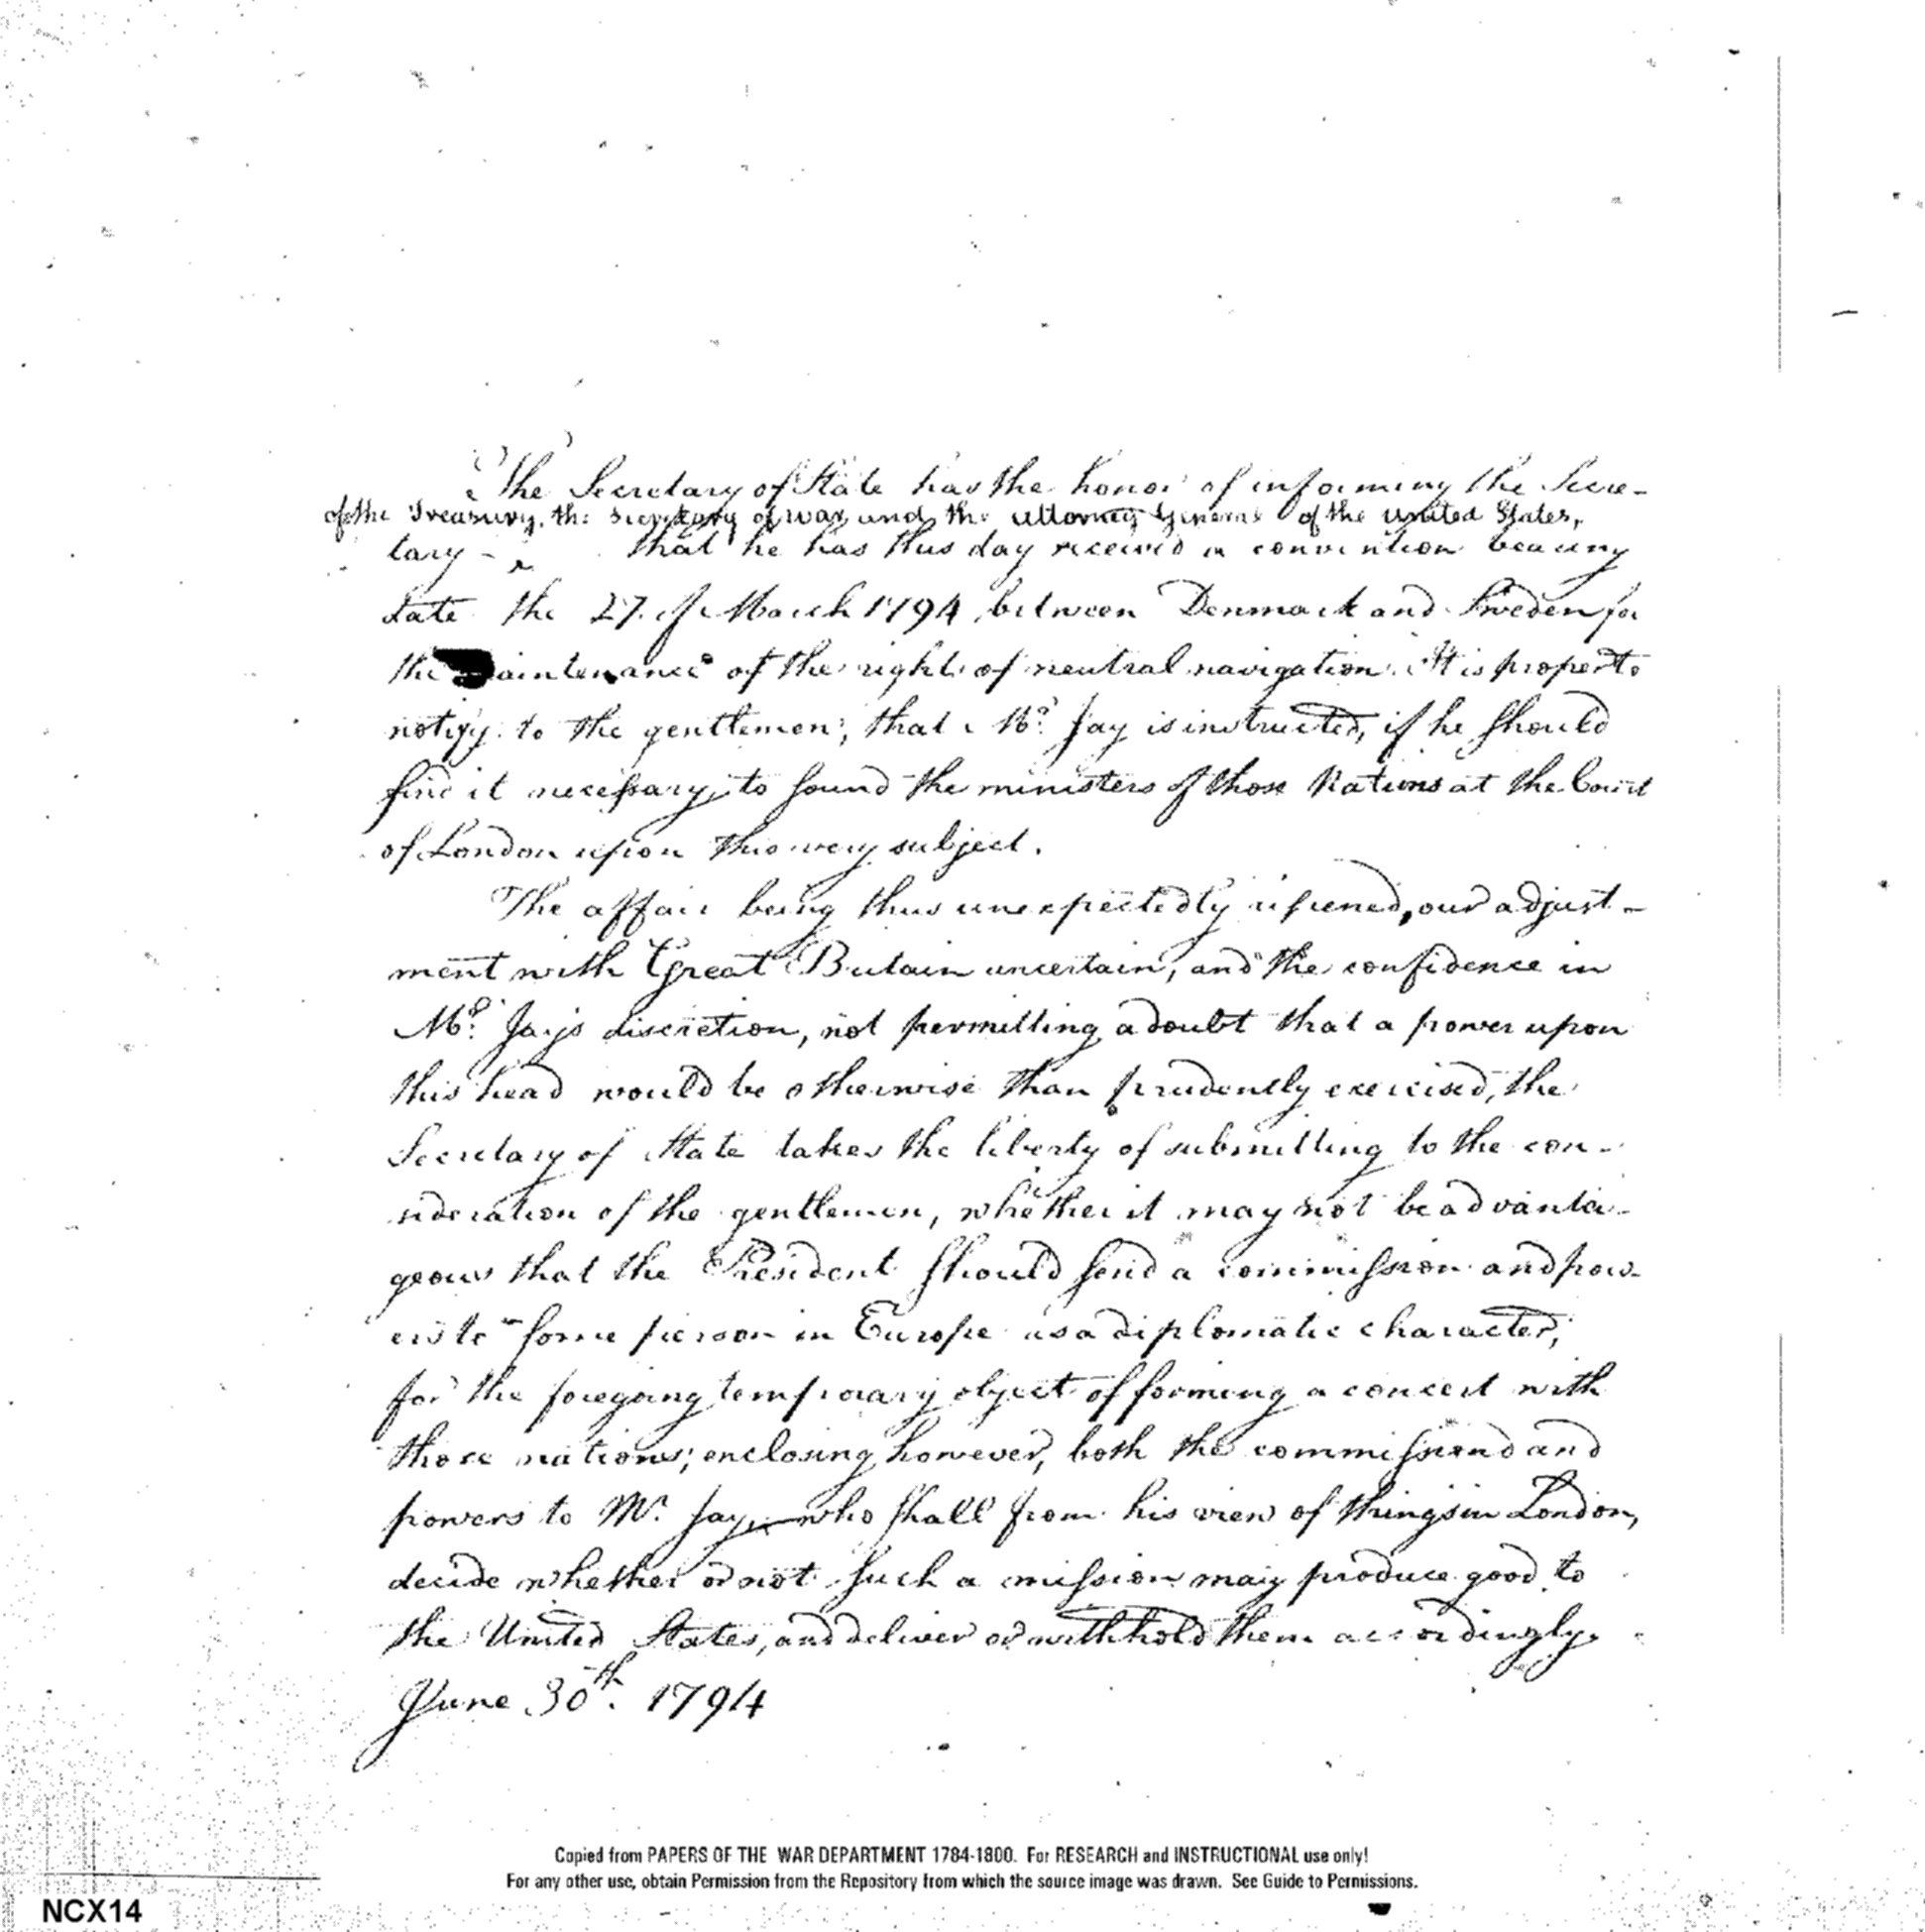 The Secretary of State has the honor of informing the Secre-
of the Treasury, the Secretary of war, and the Attorney General of the United States,
tary - ^ that he has this day received a convention bearing
date the 27. of March 1794, between Denmark and Sweden for
the maintenance of the rights of neutral navigation. It is proper to
notify to the gentlemen; that Mr. Jay is instructed, if he should
find it necessary, to sound the ministers of those Nations at the Court
of London upon this very subject.
The affair being thus unexpectedly ripened, our adjust-
ment with Great Britain uncertain, and the confidence in
Mr. Jay's discretion, not permitting a doubt that a power upon
this head would be otherwise than prudently exercised, the
Secretary of State takes the liberty of submitting to the con-
sideration of the gentlemen, whether it may not be advanta-
geous that the President should send a commission and pow-
ers to some person in Europe as a diplomatic character,
for the foregoing temporary object of forming a concert with
those nations; enclosing however, both the commission and
powers to Mr. Jay, who shall from his view of things in London,
decide whether or not such a mission may produce good to
the United States, and deliver or withhold them accordingly.
June 30th. 1794
Copied from PAPERS OF THE WAR DEPARTMENT 1784-1800. For RESEARCH and INSTRUCTIONAL use only!
For any other use, obtain Permission from the Repository from which the source image was drawn. See Guide to Permissions.
NCX14